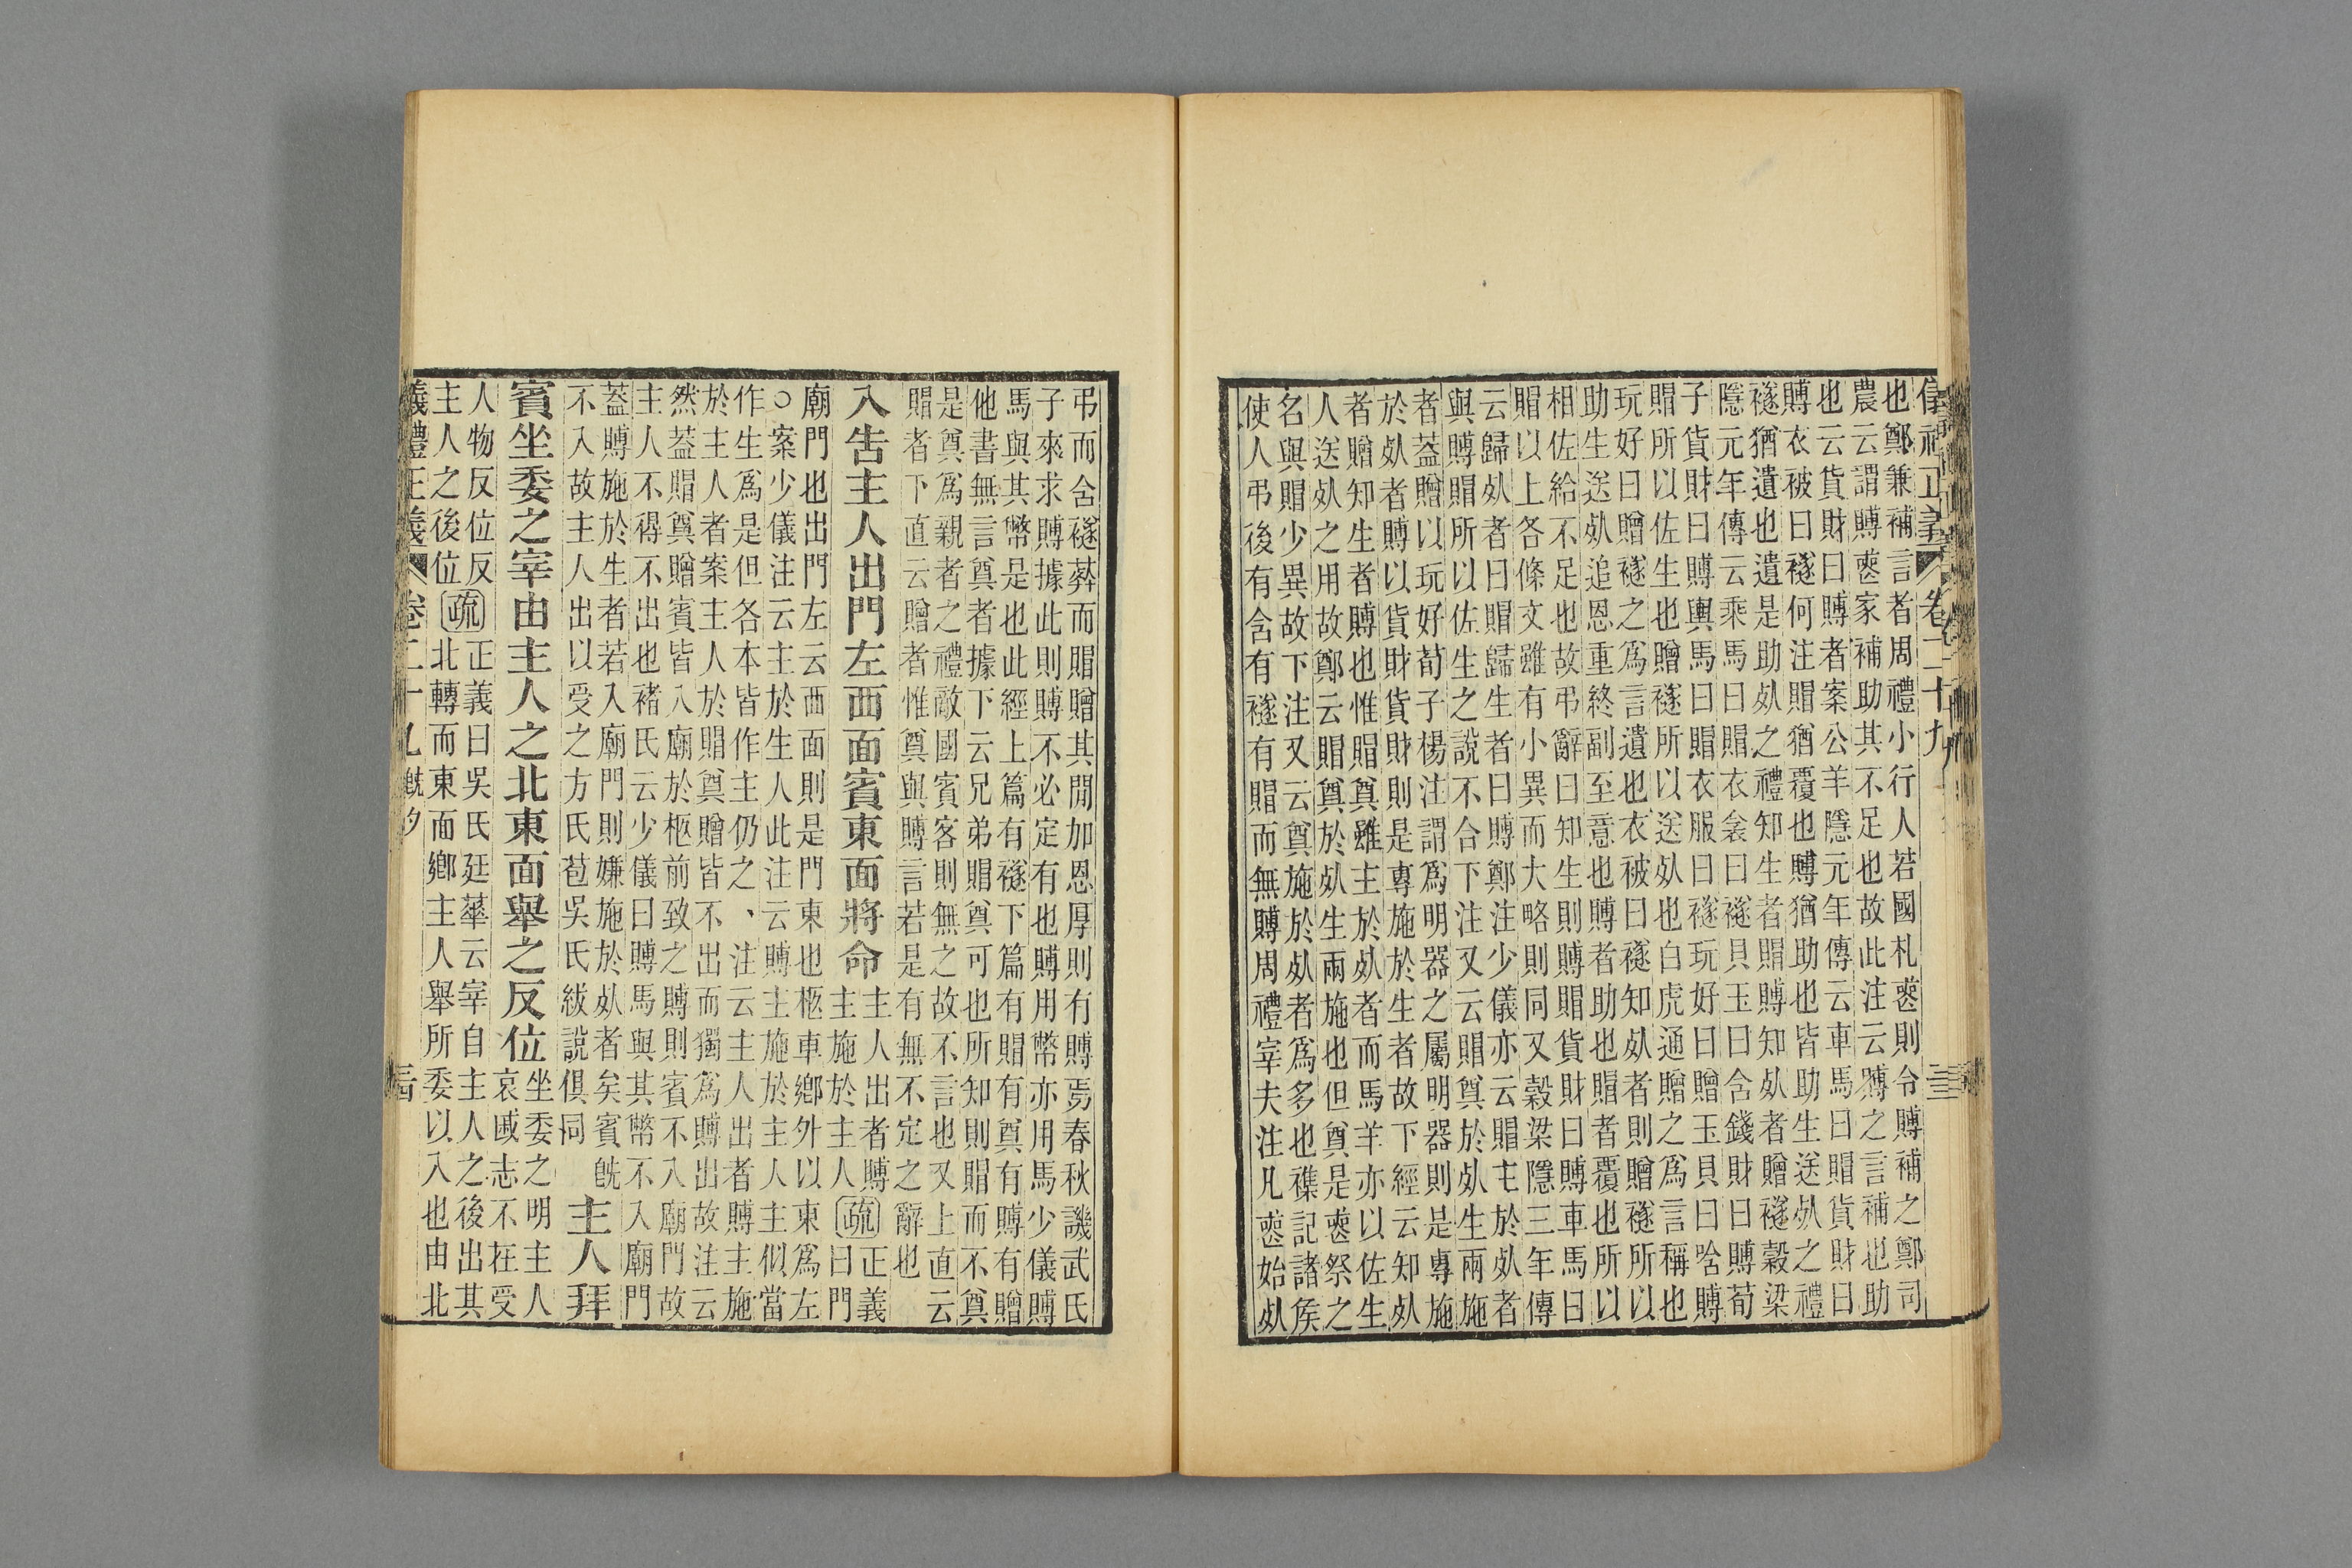 也鄭兼補言者周禮小行人若國札喪則令賻補之鄭司
農云謂賻喪家補助其不足也故此注云賻之言補也助
也云貨財曰賻者案公羊隱元年傳云車馬曰賵貨財曰
賻衣被曰襚何注賵猶覆也賻猶助也皆助生送𣦸之禮
襚猶遺也遺是助𣦸之禮知生者賵賻知𣦸者贈襚穀梁
隱元年傳云乘馬曰賵衣衾曰襚貝玉曰含錢財曰賻荀
子貨財曰賻輿馬曰賵衣服曰襚玩好曰贈玉貝曰唅賻
賵所以佐生也贈襚所以送𣦸也白虎通贈之爲言稱也
玩好曰贈襚之爲言遺也衣被曰襚知𣦸者則贈襚所以
助生送𣦸追恩重終副至意也賻者助也賵者覆也所以
相佐給不足也故弔辭曰知生則賻賵貨財曰賻車馬曰
賵以上各條文雖有小異而大略則同又穀梁隱三年傳
云歸𣦸者曰賵歸生者曰賻鄭注少儀亦云賵主於𣦸者
與賻賵所以佐生之說不合下注又云賵奠於𣦸生兩施
者蓋贈以玩好荀子楊注謂爲明器之屬明器則是專施
於𣦸者賻以貨財貨財則是專施於生者故下經云知𣦸
者贈知生者賻也惟賵奠雖主於𣦸者而馬羊亦以佐生
人送𣦸之用故鄭云賵奠於𣦸生兩施也但奠是喪祭之
名與賵少異故下注又云奠施於𣦸者爲多也襍記諸矦
使人弔後有含有襚有賵而無賻周禮宰夫注凡喪始𣦸
弔而含襚葬而賵贈其閒加恩厚則有賻焉春秋譏武氏
子來求賻據此則賻不必定有也賻用幣亦用馬少儀賻
馬與其幣是也此經上篇有襚下篇有賵有奠有賻有贈
他書無言奠者據下云兄弟賵奠可也所知則賵而不奠
是奠爲親者之禮敵國賓客則無之故不言也又上直云
賵者下直云贈者惟奠與賻言若是有無不定之辭也
入告主人出門左西面賓東面將命主人出者賻
主施於主人疏正義
曰門
廟門也出門左云西面則是門東也柩車鄉外以東爲左
○案少儀注云主於生人此注云賻主施於主人主似當
作生爲是但各本皆作主仍之、注云主人出者賻主施
於主人者案主人於賵奠贈皆不出而獨爲賻出故注云
然蓋賵奠贈賓皆入廟於柩前致之賻則賓不入廟門故
主人不得不出也褚氏云少儀曰賻馬與其幣不入廟門
蓋賻施於生者若入廟門則嫌施於𣦸者矣賓旣
不入故主人出以受之方氏苞吳氏紱說俱同主人拜
賓坐委之宰由主人之北東面舉之反位坐委之明主人
哀慼志不在受
人物反位反
主人之後位疏正義曰吳氏廷華云宰自主人之後出其
北轉而東面鄉主人舉所委以入也由北
儀禮正義 卷二十九旣夕